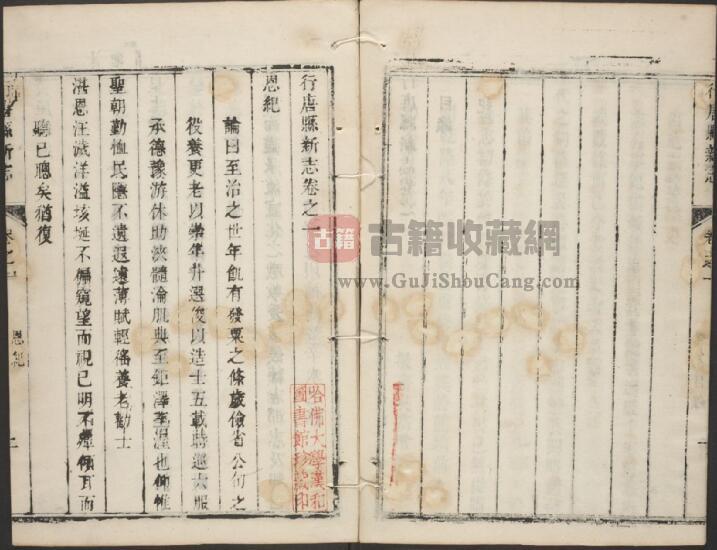 行唐縣新志
卷之一
行唐縣新志卷之一
恩紀
論曰至治之世年飢有發粟之條歲儉省公旬之
役養更老以崇年升選俊以造士五載時巡六服
承德豫游休助浹髓淪肌典至鉅澤至渥也仰惟
聖朝勤恤民隱不遺遐邇薄賦輕徭養老勸士
洪恩汪濊洋溢垓埏不偏窺望而視已明不殫傾耳而
聽已聰矣猶復
唐縣新志
卷之一
恩紀
哈佛大學漢和
圖書館珍藏印
古籍 古籍收藏網
www.GuJiShouCang.com